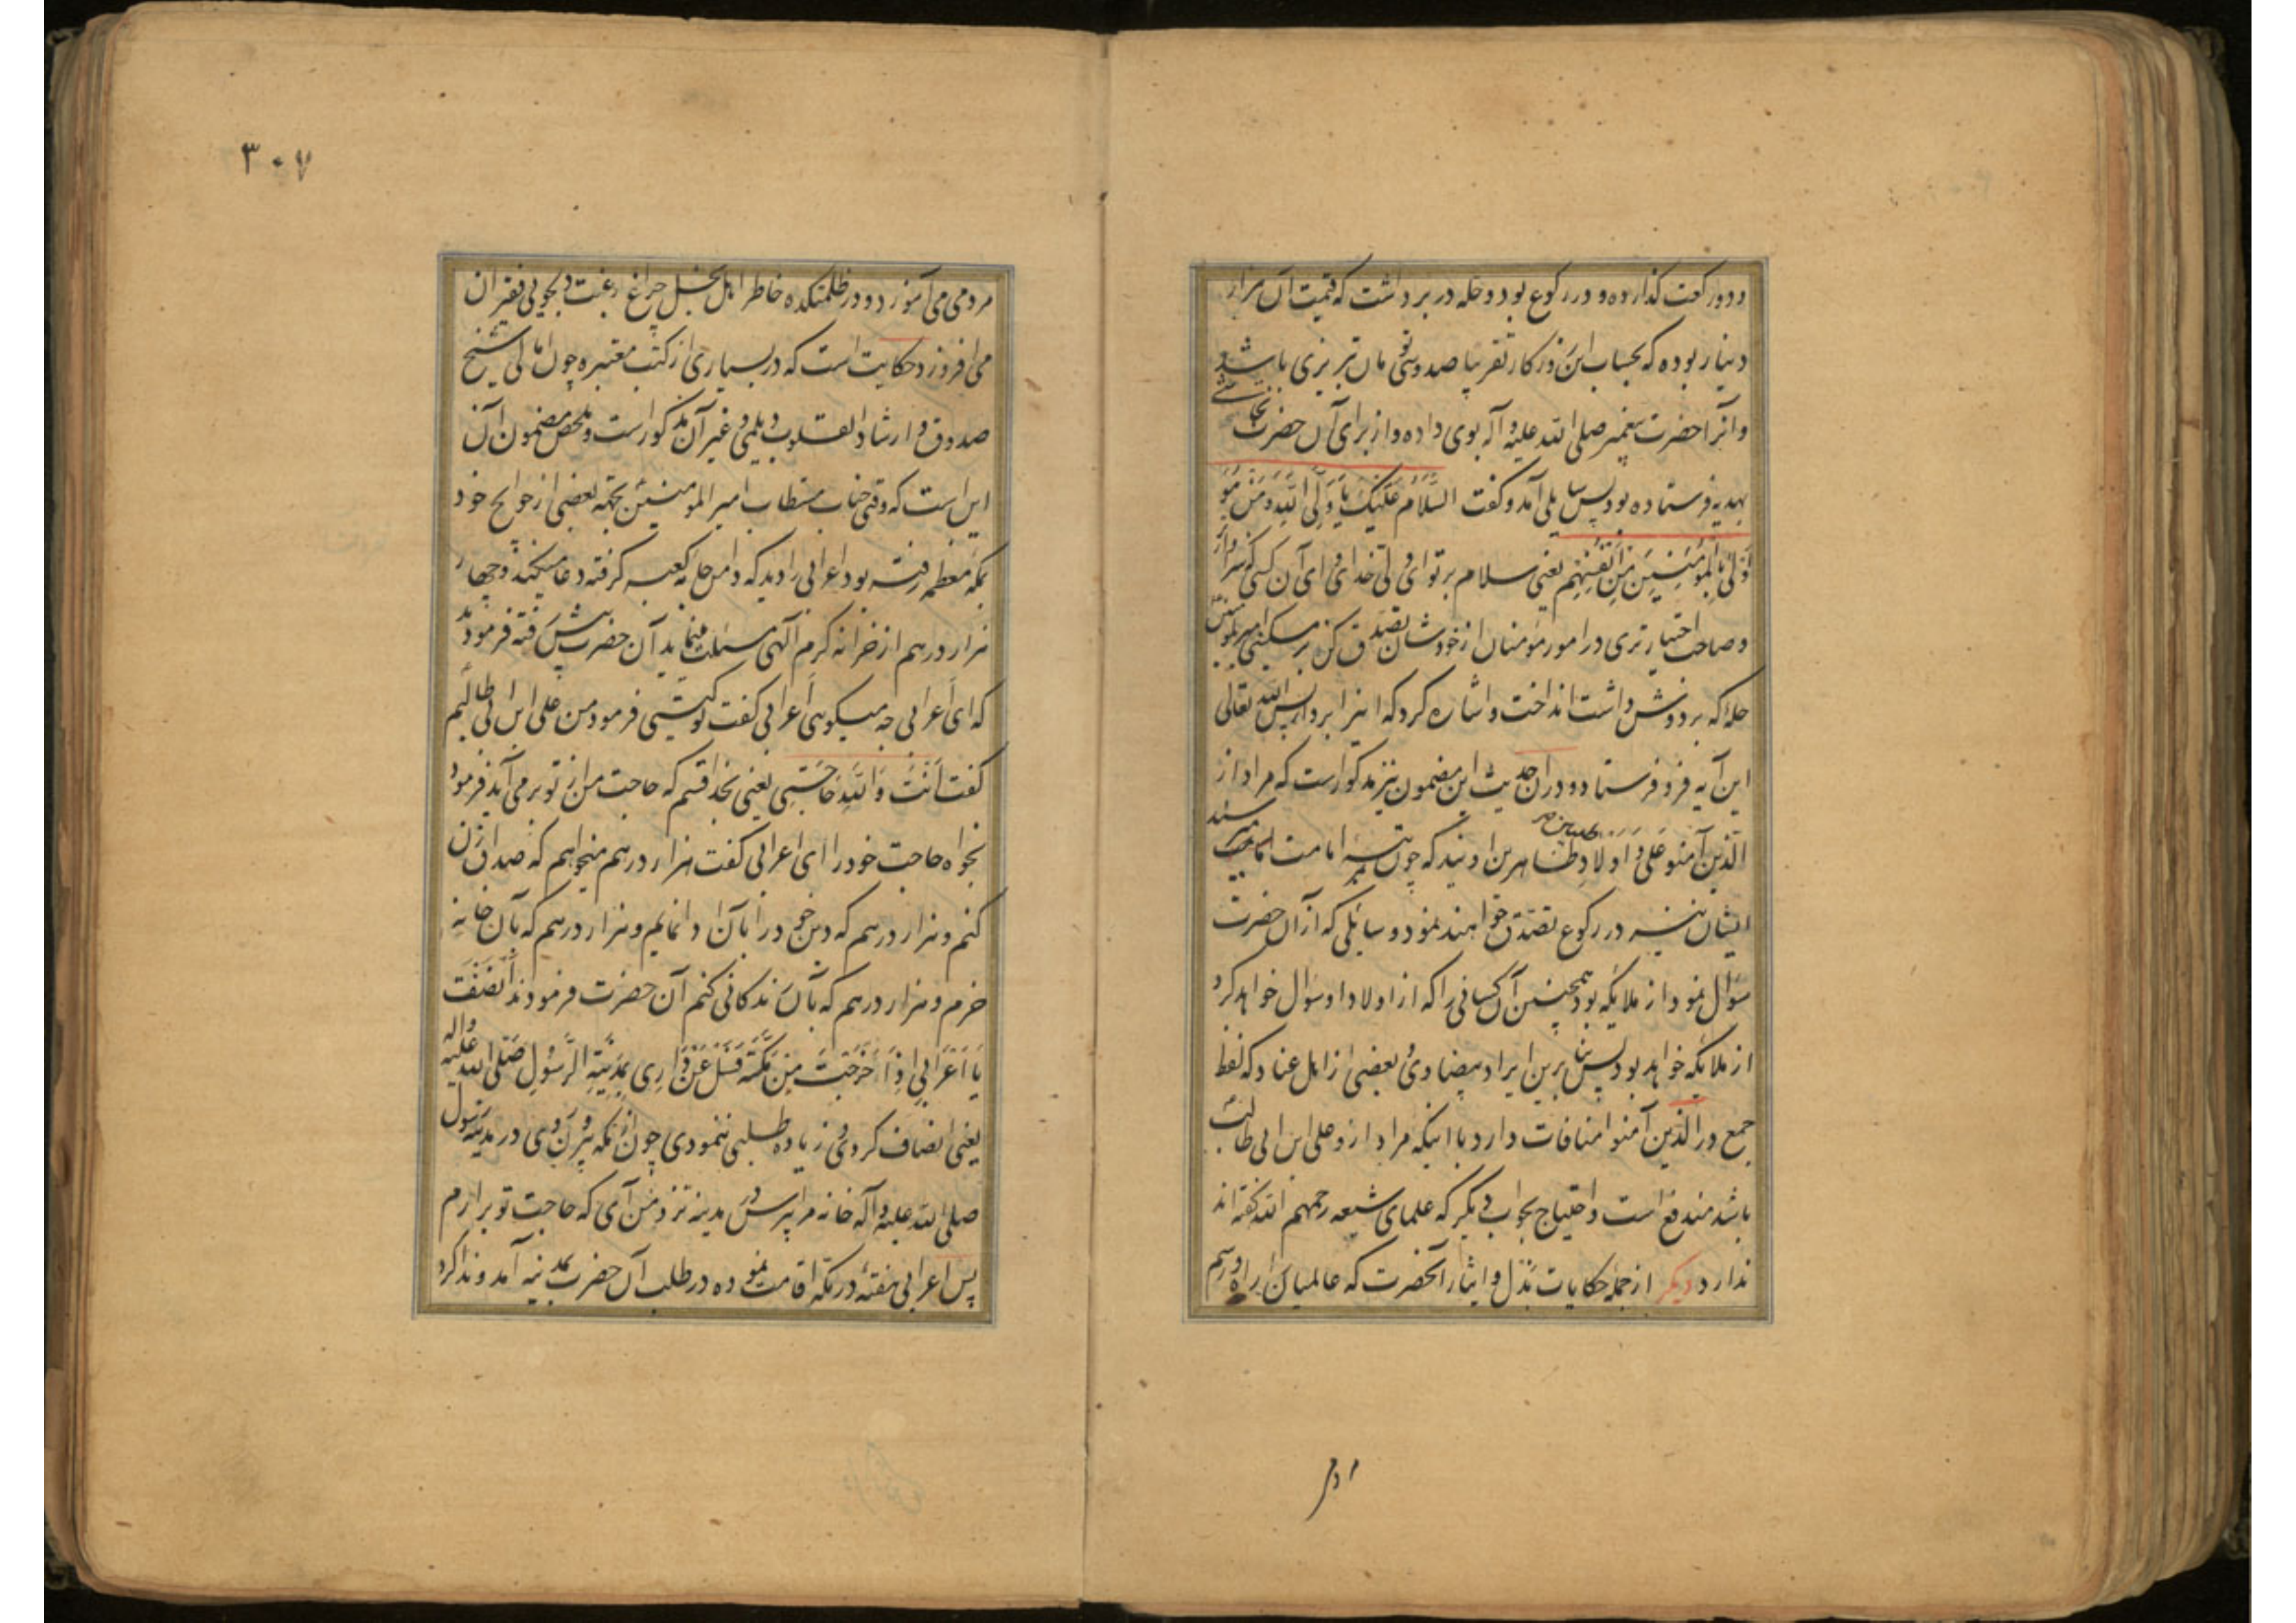 و دو رکعت گذارده و در رکوع بود و حله در بر داشت که قیمت آن هزار
دینار بوده که بحساب این روزکار تقریبا صد و سی تومان تبریزی باشد
و آنرا حضرت پیغمبر صلی الله علیه و آله بوی داده و از برای آن حضرت نجاشی
بهدیه فرستاده بود پس سایلی آمد و گفت السَّلَامُ عَلَیْکَ یَا وَلِیَّ اللهِ وَ مَنْ هُوَ
أَوْلیٰ بِالْمُؤْمِنِینَ مِنْ أَنْفُسِهِمْ یعنی سلام بر تو ای ولی خدا و ای آن کسی که سزاوارتر
و صاحب اختیارتری در امور مؤمنان از خودشان تصدق کن بر مسکینی امیرالمؤمنین
حلۀ که بر دوش داشت انداخت و اشاره کرد که اینرا بردار پس الله تعالی
این آیه فرو فرستاد و در ان حدیث این مضمون نیز مذکور است که مراد از
الَّذِینَ آمَنُوا عَلی وَ اَوْلادِ طاهرین اویند که چون بمرتبه امامت رسند
طیبین
ایشان نیز در رکوع تصدق خواهند نمود و سایلی که از آن حضرت
سؤال نمود از ملایکه بود همچنین آن کسانی را که از اولاد او سؤال خواهد کرد
از ملائکه خواهد بود پس بنابرین ایراد بیضاوی و بعضی از اهل عناد که لفظ
جمع در الَّذِینَ آمنوا منافات دارد با اینکه مراد ازو علی ابن ابی طالب
باشد مندفع است و احتیاج بجواب دیگر که علمای شیعه رحمهم الله گفته اند
ندارد دیکر از جمله حکایات بذل و ایثار آنحضرت که عالمیان را راه و رسم
مردمی
۳۰۷
مردمی می آموزد و در ظلمتکده خاطر اهل بخل چراغ رغبت دلجویی فقیران
می افروزد حکایت است که در بسیاری از کتب معتبره چون امالی شیخ
صدوق و ارشاد القلوب دیلمی و غیر آن مذکور است و ملخص مضمون آن
این است که وقتی جناب مستطاب امیر المومنین بجهة بعضی از حوایج خود
بمکه معظمه رفته بود اعرابی را دید که دامن جامه کعبه گرفته دعا میکند و چهار
هزار درهم از خزانه کرم آلهی مسئلت مینماید آن حضرت پیش رفته فرمودند
که ای اعرابی چه میکویی اعرابی کفت تو کیستی فرمود من علی ابن ابی طالبم
کفت اَنْتَ وَاللهِ حَاجَتِی یعنی بخدا قسم که حاجت من از تو بر می آید فرمود
بخواه حاجت خود را ای اعرابی کفت هزار درهم میخواهم که صداق زن
کنم و هزار درهم که دین خود را بآن ادا نمایم و هزار درهم که بآن خانه
خرم و هزار درهم که بآن زندکانی کنم آن حضرت فرمودند أَنْصَفْتَ
یَا اَعْرَابِی اِذَا خَرَجْتَ مِنْ مَکَّةَ فَسَلْ عَنْ دَارِی بِمَدِینَةِ الرَّسُولِ صَلَّی الله عَلَیْهِ وآله
یعنی انصاف کردی و زیاده طلبی ننمودی چون از مکه بیرون روی در مدینه رسول
صلی الله علیه و آله خانه مرا بپرس و در مدینه نزد من آی که حاجت تو برارم
پس اعرابی هفتۀ در مکه اقامت نموده در طلب آن حضرت بمدینه آمد و ندا کرد